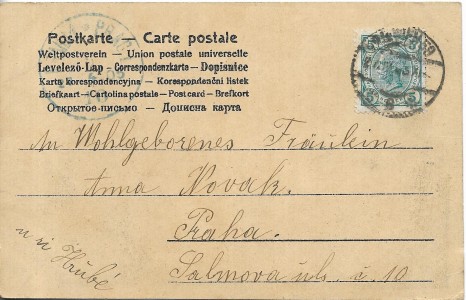 Postkarte — Carte postale
Weltpostverein — Union postale universelle
Levelező-Lap — Correspondenzkarte — Dopisnice
Karta korespondencyjna — Korespondenční lístek
Briefkaart — Cartolina postale — Post card — Brefkort
Открытое письмо — Дописна карта
5 5
5 5
An Wohlgeborenes Fräulein
Anna Novak.
Praha.
u sl. Hrubé
Salmova ul. č. 10